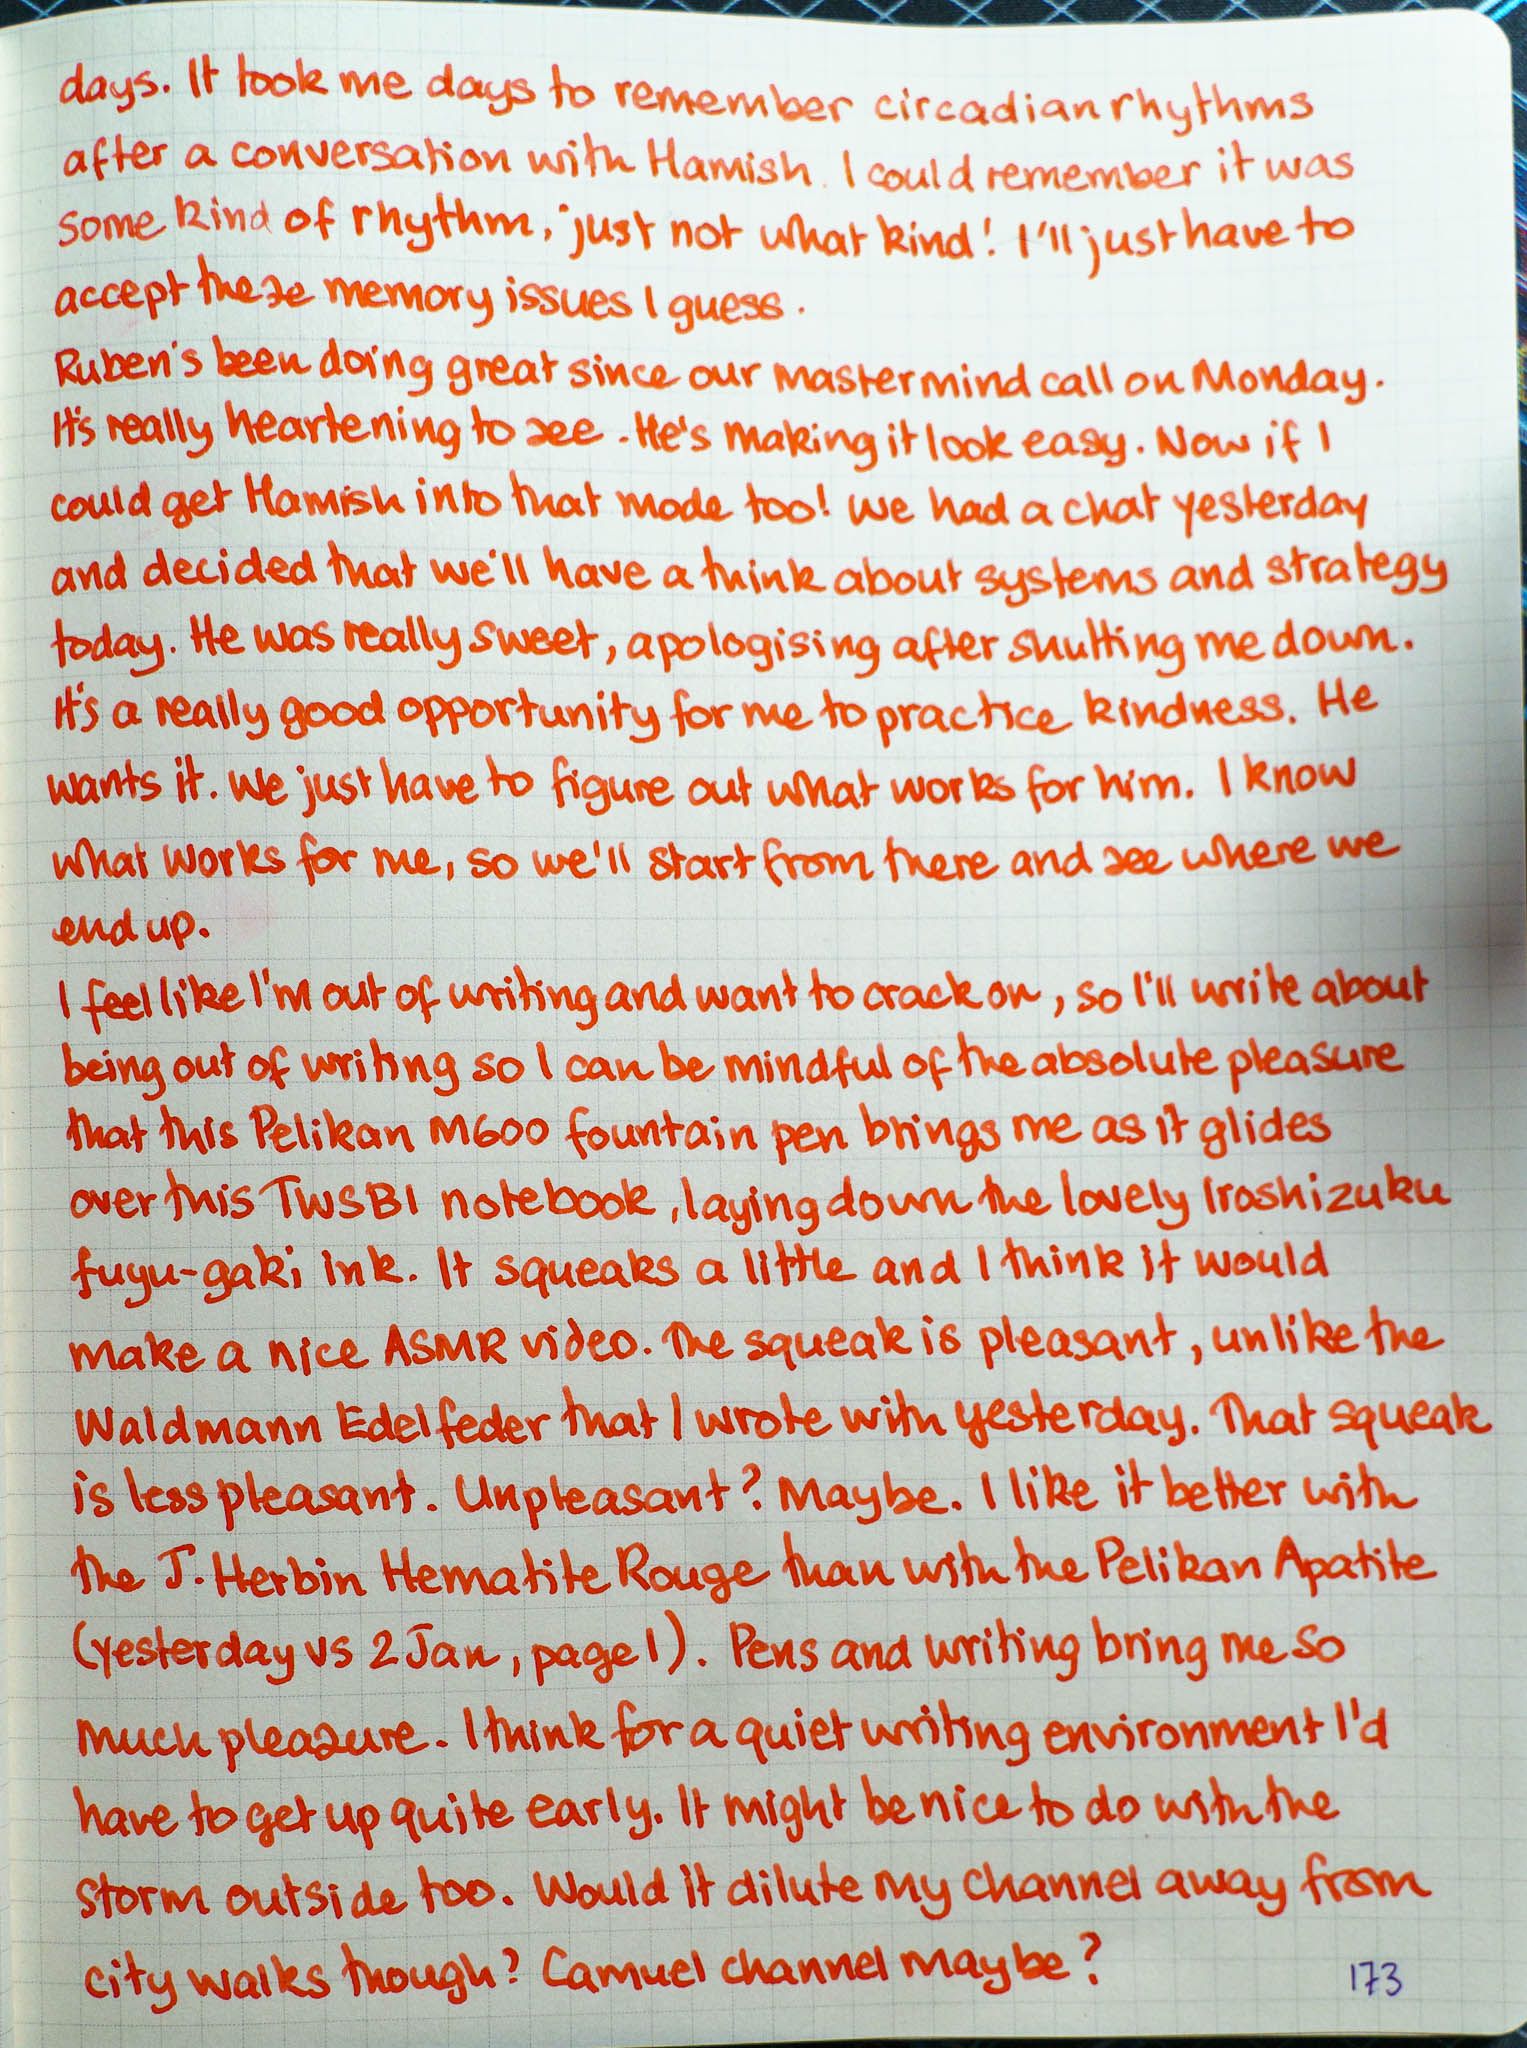 days. It took me days to remember circadian rhythms
after a conversation with Hamish. I could remember it was
some kind of rhythm, just not what kind! I'll just have to
accept these memory issues I guess.
Ruben's been doing great since our mastermind call on Monday.
It's really heartening to see. He's making it look easy. Now if I
could get Hamish into that mode too! We had a chat yesterday
and decided that we'll have a think about systems and strategy
today. He was really sweet, apologising after shutting me down.
It's a really good opportunity for me to practice kindness. He
wants it. We just have to figure out what works for him. I know
what works for me, so we'll start from there and see where we
end up.
I feel like I'm out of writing and want to crack on, so I'll write about
being out of writing so I can be mindful of the absolute pleasure
that this Pelikan M600 fountain pen brings me as it glides
over this TWSBI notebook, laying down the lovely Iroshizuku
fuyu-gaki ink. It squeaks a little and I think it would
make a nice ASMR video. The squeak is pleasant, unlike the
Waldmann Edelfeder that I wrote with yesterday. That squeak
is less pleasant. Unpleasant? Maybe. I like it better with
the J. Herbin Hematite Rouge than with the Pelikan Apatite
(yesterday vs 2 Jan, page 1). Pens and writing bring me so
much pleasure. I think for a quiet writing environment I'd
have to get up quite early. It might be nice to do with the
storm outside too. Would it dilute my channel away from
city walks though? Camuel channel maybe?
173